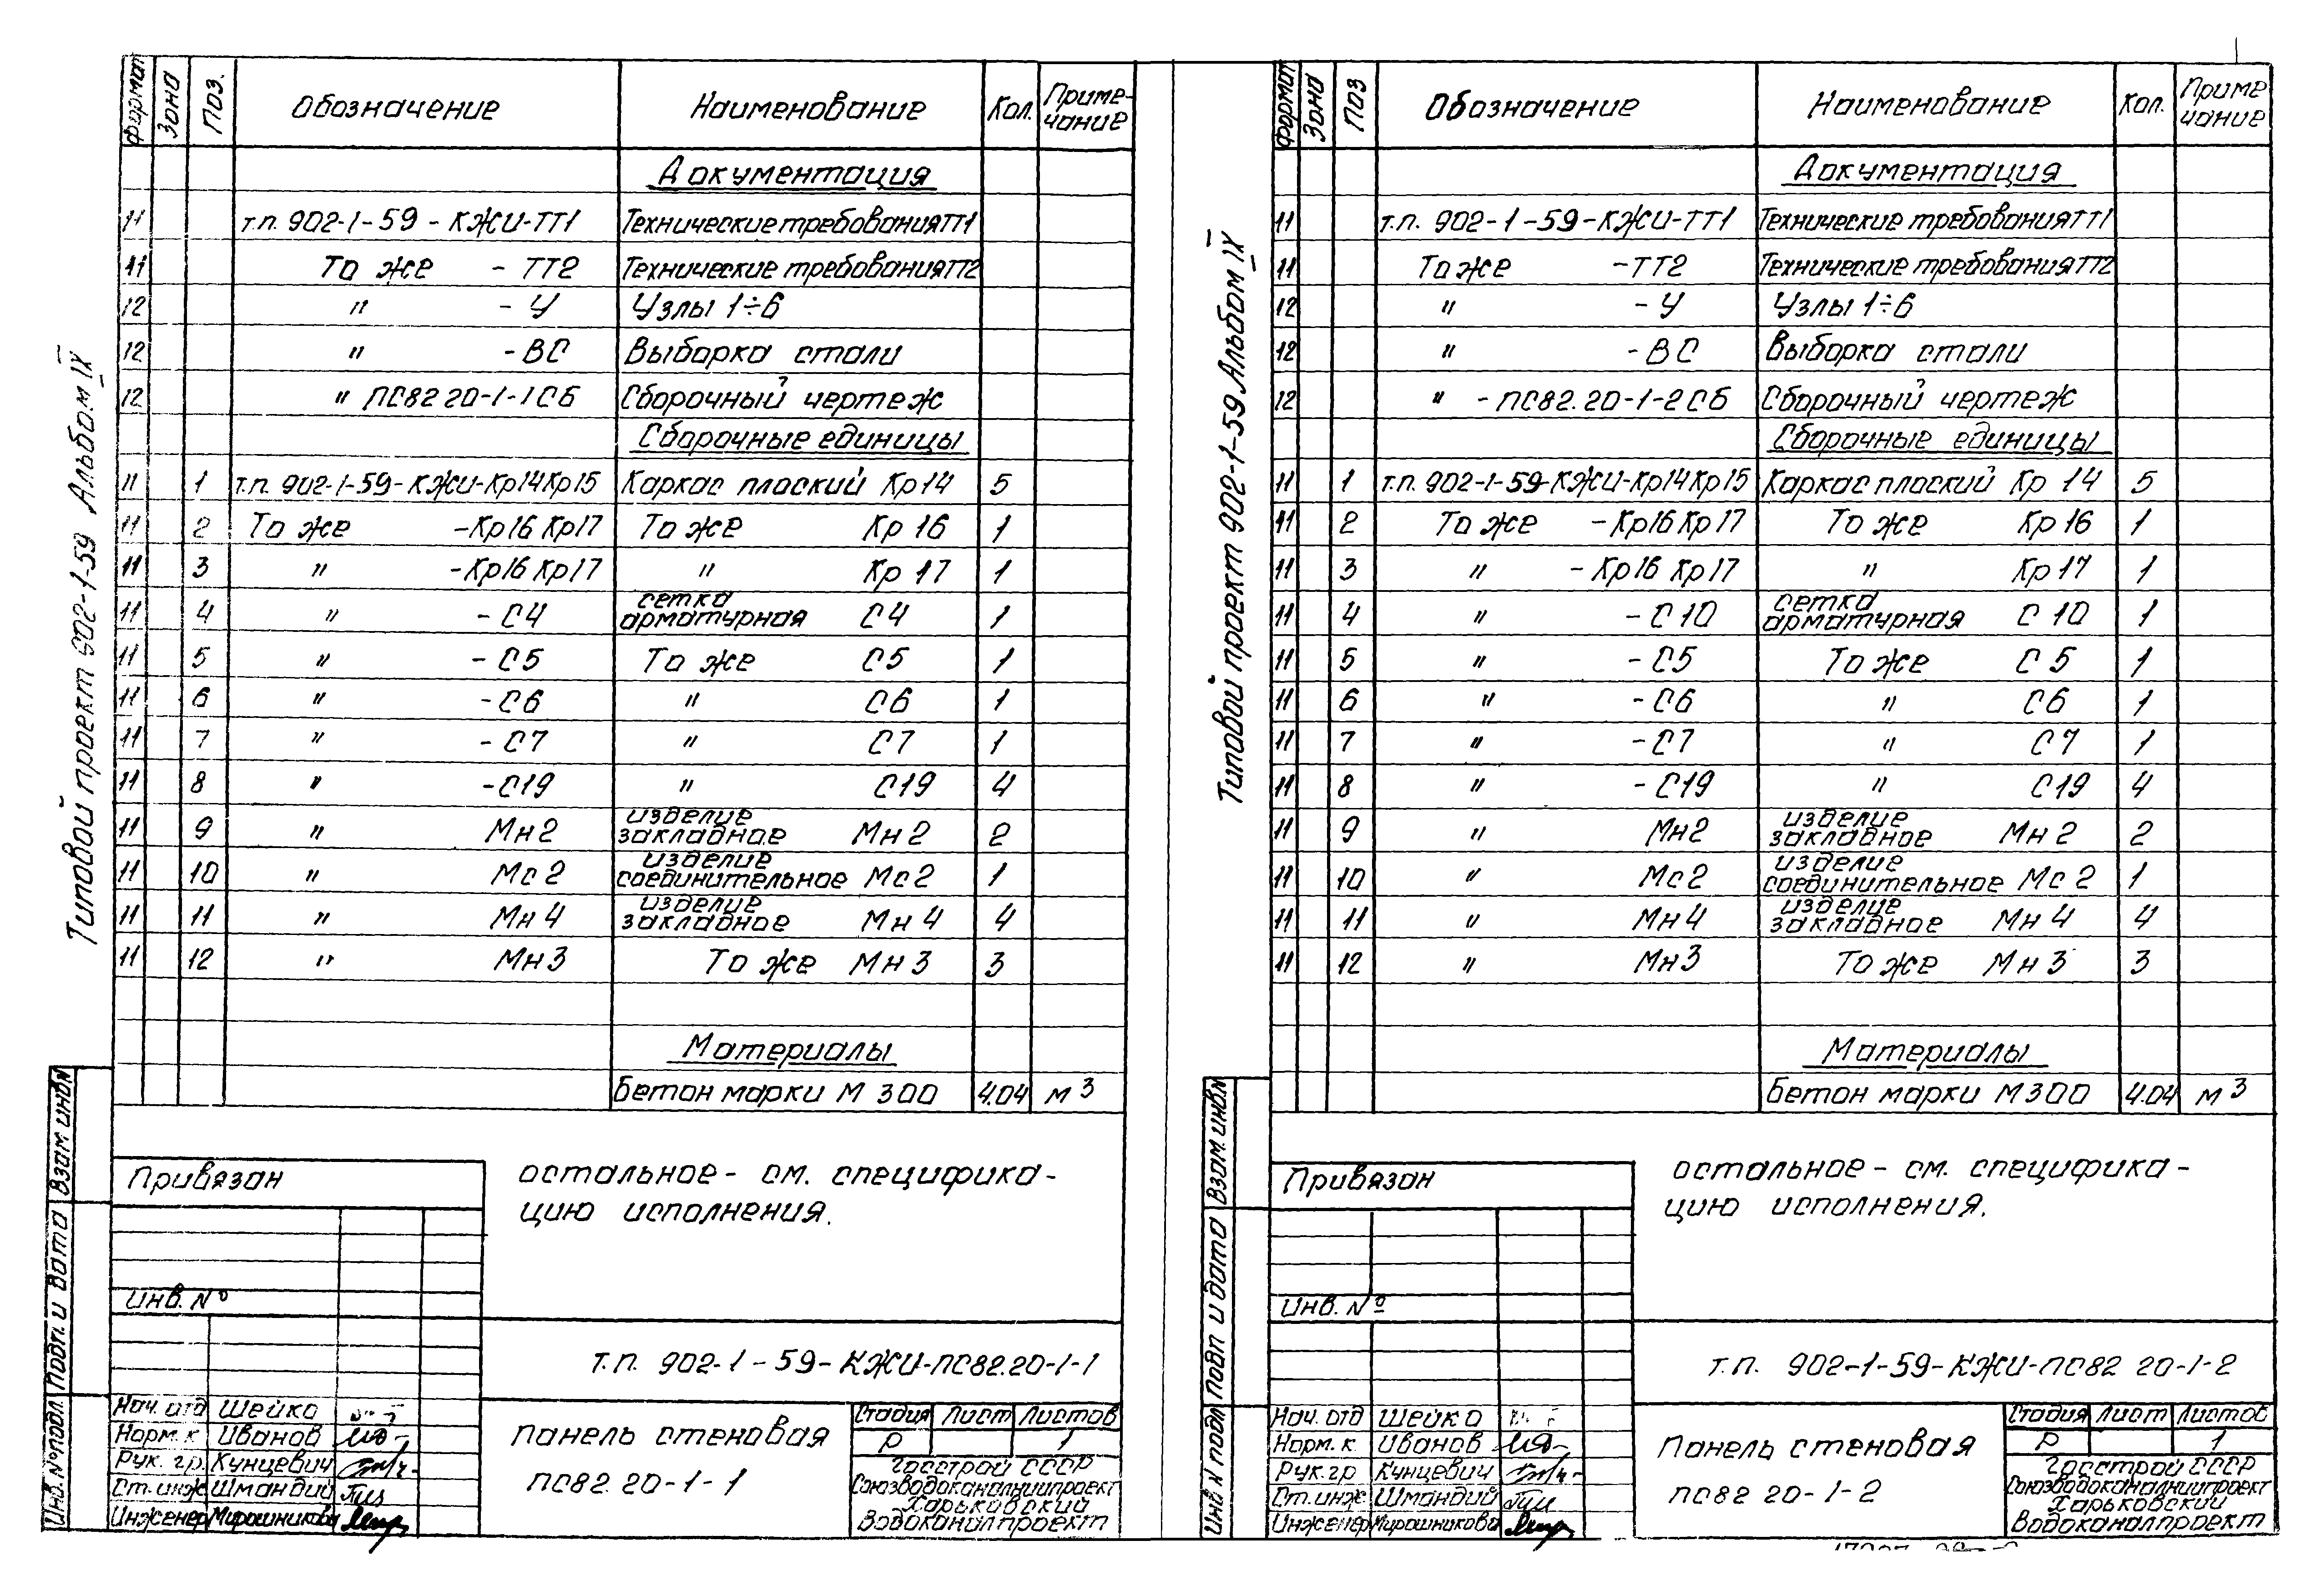 Типовой проект 902-1-59 Альбом IX
Формат Зона Поз. Обозначение Наименование Кол. Приме-
чание
Документация
11 т.п. 902-1-59-КЖИ-ТТ1 Технические требования ТТ1
11 То же -ТТ2 Технические требования ТТ2
12 " -У Узлы 1÷6
12 " -ВС Выборка стали
12 " ПС82 20-1-1СБ Сборочный чертеж
Сборочные единицы
11 1 т.п. 902-1-59-КЖИ-Кр14Кр15 Каркас плоский Кр14 5
11 2 То же -Кр16 Кр17 То же Кр 16 1
11 3 " -Кр16 Кр17 " Кр 17 1
11 4 " -С4 сетка
арматурная С4 1
11 5 " -С5 То же С5 1
11 6 " -С6 " С6 1
11 7 " -С7 " С7 1
11 8 " -С19 " С19 4
11 9 " Мн2 изделие
закладное Мн2 2
11 10 " Мс2 изделие
соединительное Мс2 1
11 11 " Мн4 изделие
закладное Мн4 4
11 12 " Мн3 То же Мн3 3
Материалы
Бетон марки М 300 4.04 м3
остальное - см. специфика-
цию исполнения.
Привязан
Инв. №
Взам инв№
Подп. и дата
Инв. №подл.
т.п. 902-1-59-КЖИ-ПС82.20-1-1
Нач. отд Шейко
Норм. к Иванов
Рук. гр. Кунцевич
Ст. инж Шмандий
Инженер Мирошникова
Панель стеновая
ПС82 20-1-1
Стадия Лист Листов
Р 1
Госстрой СССР
Союзводоканалниипроект
Харьковский
Водоканалпроект
Типовой проект 902-1-59 Альбом IX
Формат Зона Поз Обозначение Наименование Кол. Приме
чание
Документация
11 т.п. 902-1-59-КЖИ-ТТ1 Технические требования ТТ1
11 То же -ТТ2 Технические требования ТТ2
12 " -У Узлы 1÷6
12 " -ВС Выборка стали
12 " -ПС82.20-1-2СБ Сборочный чертеж
Сборочные единицы
11 1 т.п. 902-1-59-КЖИ-Кр14Кр15 Каркас плоский Кр 14 5
11 2 То же -Кр16 Кр17 То же Кр 16 1
11 3 " -Кр16 Кр17 " Кр 17 1
11 4 " -С10 сетка
арматурная С 10 1
11 5 " -С5 То же С 5 1
11 6 " -С6 " С6 1
11 7 " -С7 " С7 1
11 8 " -С19 " С19 4
11 9 " Мн2 изделие
закладное Мн2 2
11 10 " Мс2 изделие
соединительное Мс2 1
11 11 " Мн4 изделие
закладное Мн4 4
11 12 " Мн3 То же Мн3 3
Материалы
Бетон марки М300 4.04 м3
остальное - см. специфика-
цию исполнения.
Привязан
Инв. №
Взам. инв№
Подп и дата
Инв N подл
т.п. 902-1-59-КЖИ-ПС82 20-1-2
Нач. отд Шейко
Норм. к. Иванов
Рук. гр Кунцевич
Ст. инж Шмандий
Инженер Мирошникова
Панель стеновая
ПС82 20-1-2
Стадия Лист Листов
Р 1
Госстрой СССР
Союзводоканалниипроект
Харьковский
Водоканалпроект